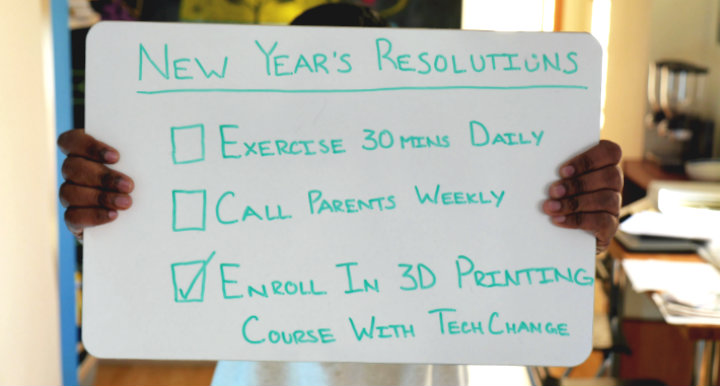 NEW YEAR'S RESOLUTIONS
EXERCISE 30 MINS DAILY
CALL PARENTS WEEKLY
ENROLL IN 3D PRINTING
COURSE WITH TECHCHANGE